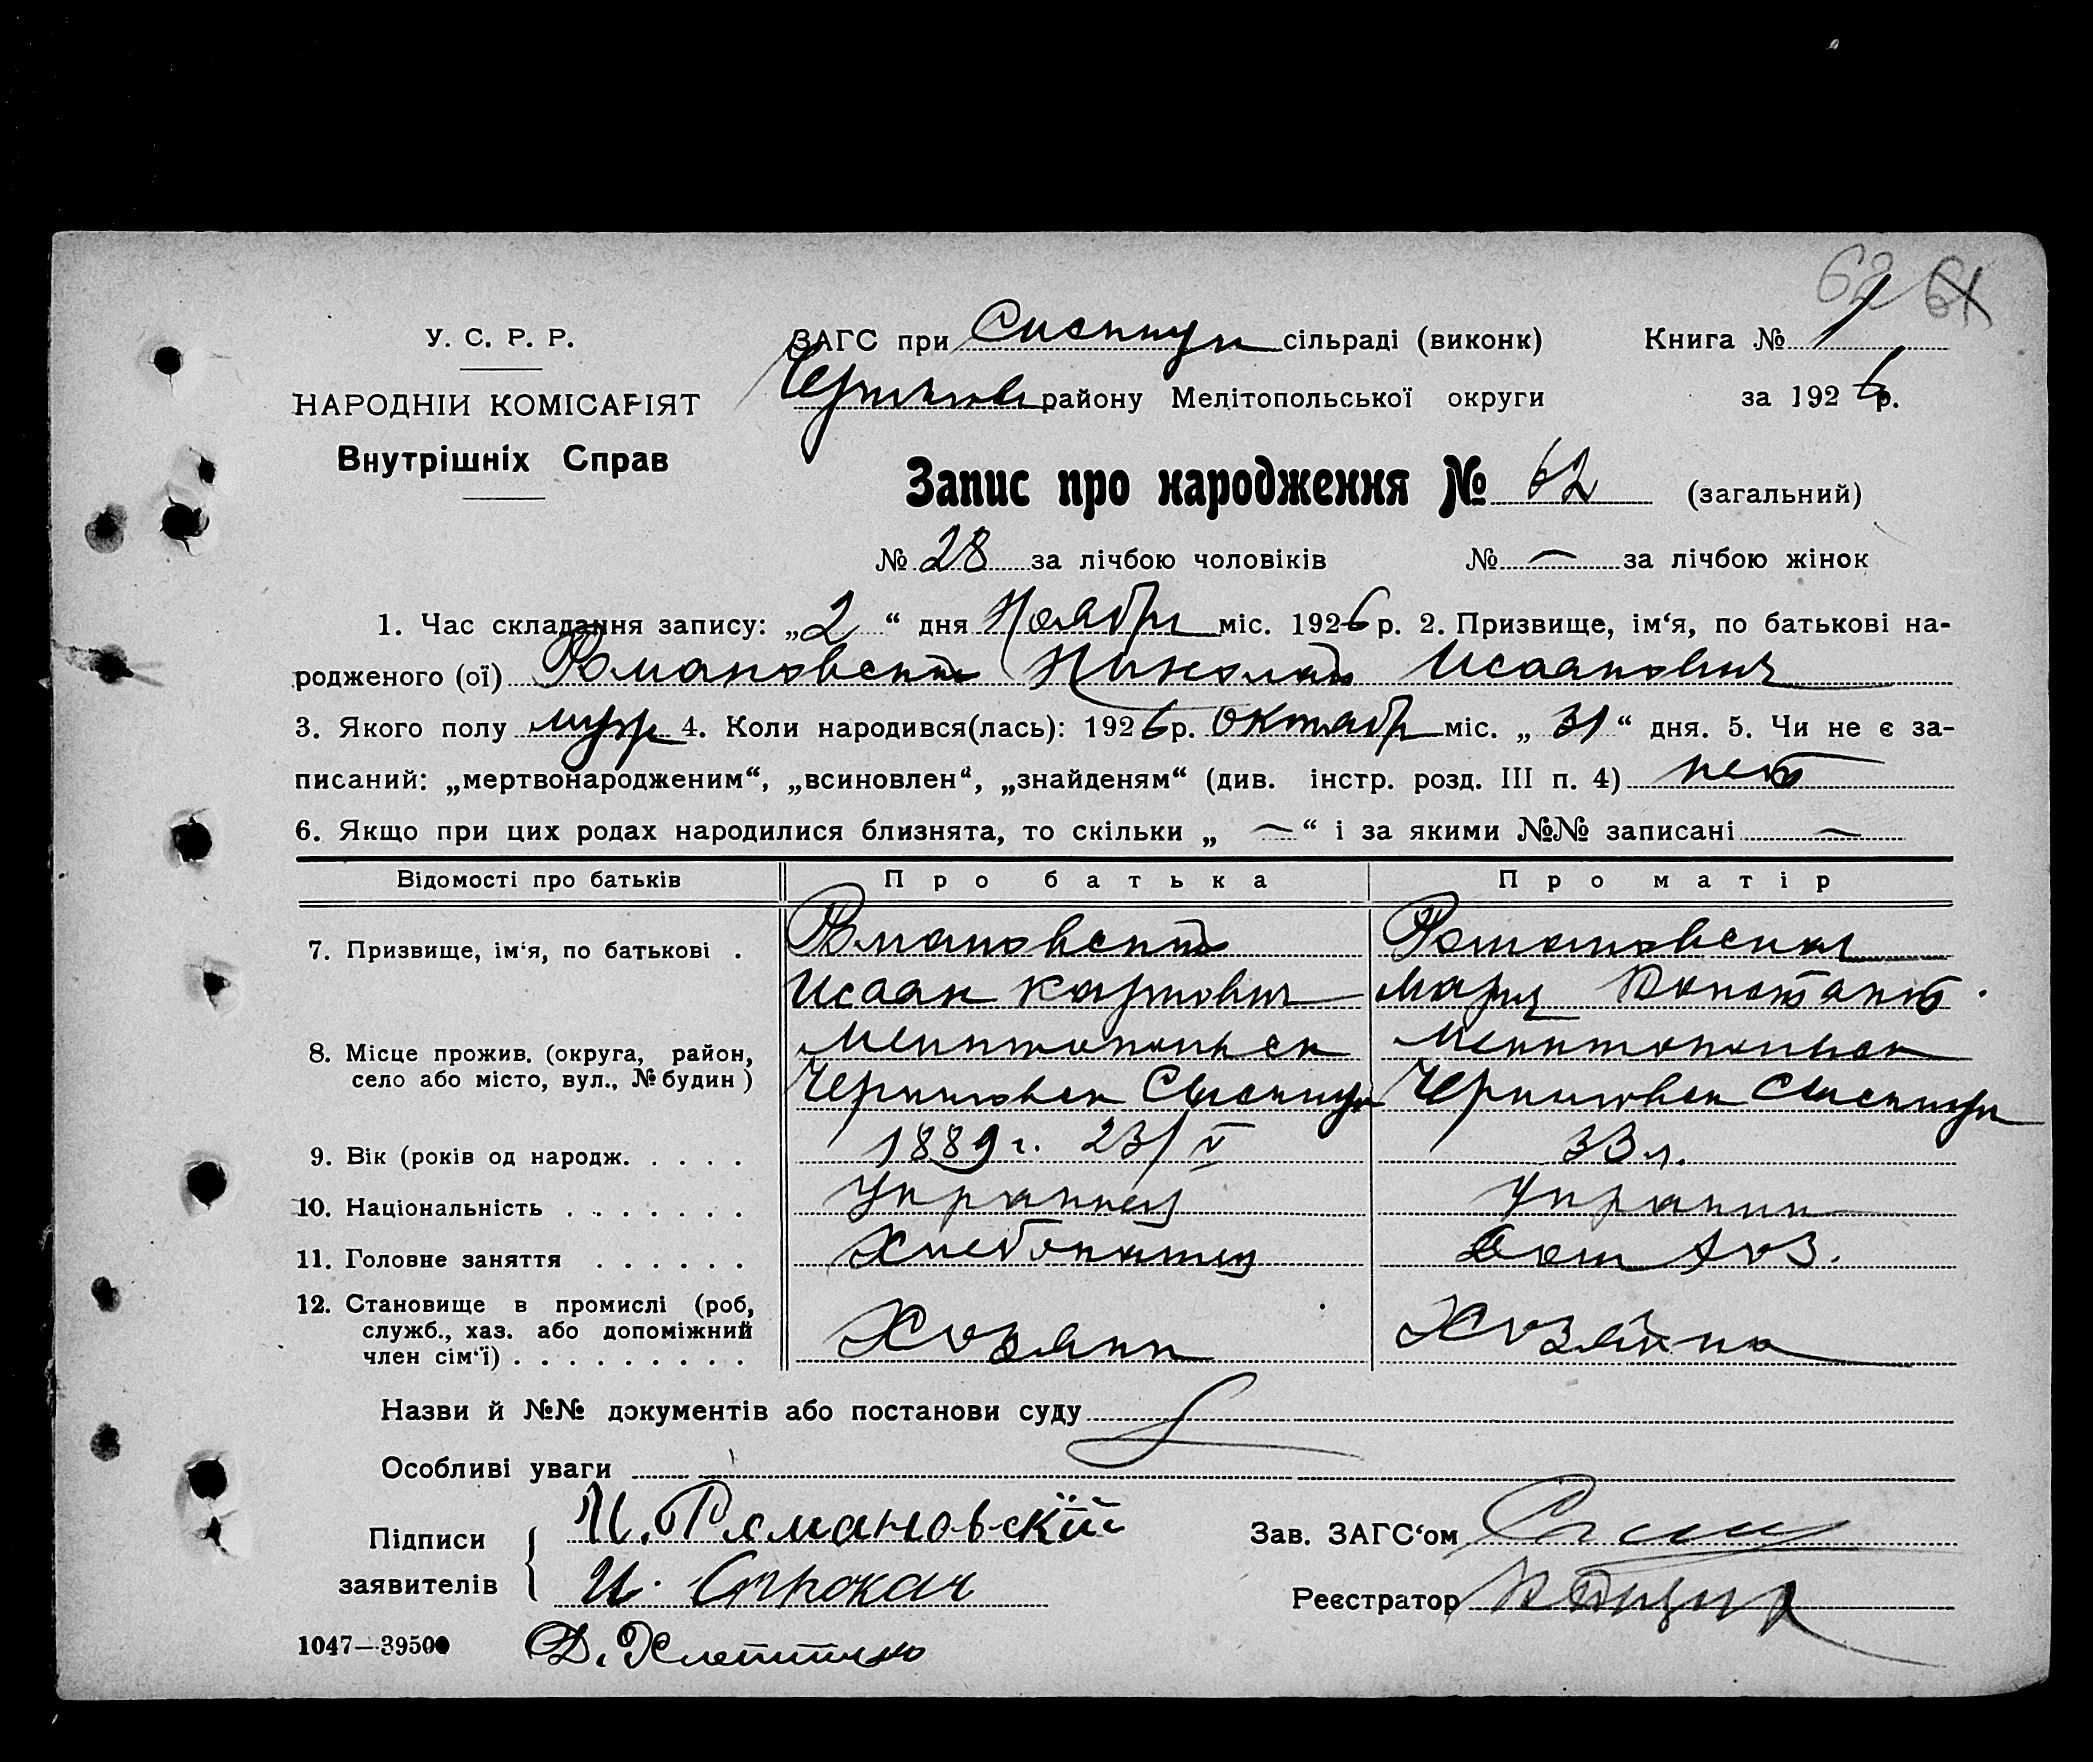 62 61
У. С. Р. Р.
НАРОДНІЙ КОМІСАРІЯТ
Внутрішніх Справ
ЗАГС при сільраді (виконк)
району Мелітопольської округи
Книга № 1
за 1926 р.
Запис про народження № 62 (загальний)
№ 28 за лічбою чоловіків № — за лічбою жінок
1. Час складання запису: „2“ дня Ноября міс. 1926 р. 2. Призвище, ім‘я, по батькові на-
родженого (ої) Романовский Николай Исаакович
3. Якого полу муж 4. Коли народився(лась): 1926 р. октябр міс. „31“ дня. 5. Чи не є за-
писаний: „мертвонародженим“, „всиновлен“, „знайденям“ (див. інстр. розд. III п. 4) нет
6. Якщо при цих родах народилися близнята, то скільки „—“ і за якими №№ записані —
Відомості про батьків Про батька Про матір
7. Призвище, ім‘я, по батькові . Романовский Романовская
Исаак Карпович Мария Константи
8. Місце прожив. (округа, район, Мелитопольск Мелитопольск
село або місто, вул., № будин) Черниговск Черниговск
9. Вік (років од народж. . . . . 1889 г. 23/V 33 л.
10. Національність . . . . . . . Украинец Украин
11. Головне заняття . . . . . . Хлебопашец Дом хоз.
12. Становище в промислі (роб,
служб., хаз. або допоміжний Хозяин Хозяйка
член сім‘ї) . . . . . . . . .
Назви й №№ документів або постанови суду
Особливі уваги
Підписи И. Романовский Зав. ЗАГС‘ом
заявителів И. Строкач Реєстратор
1047—39500 Д.